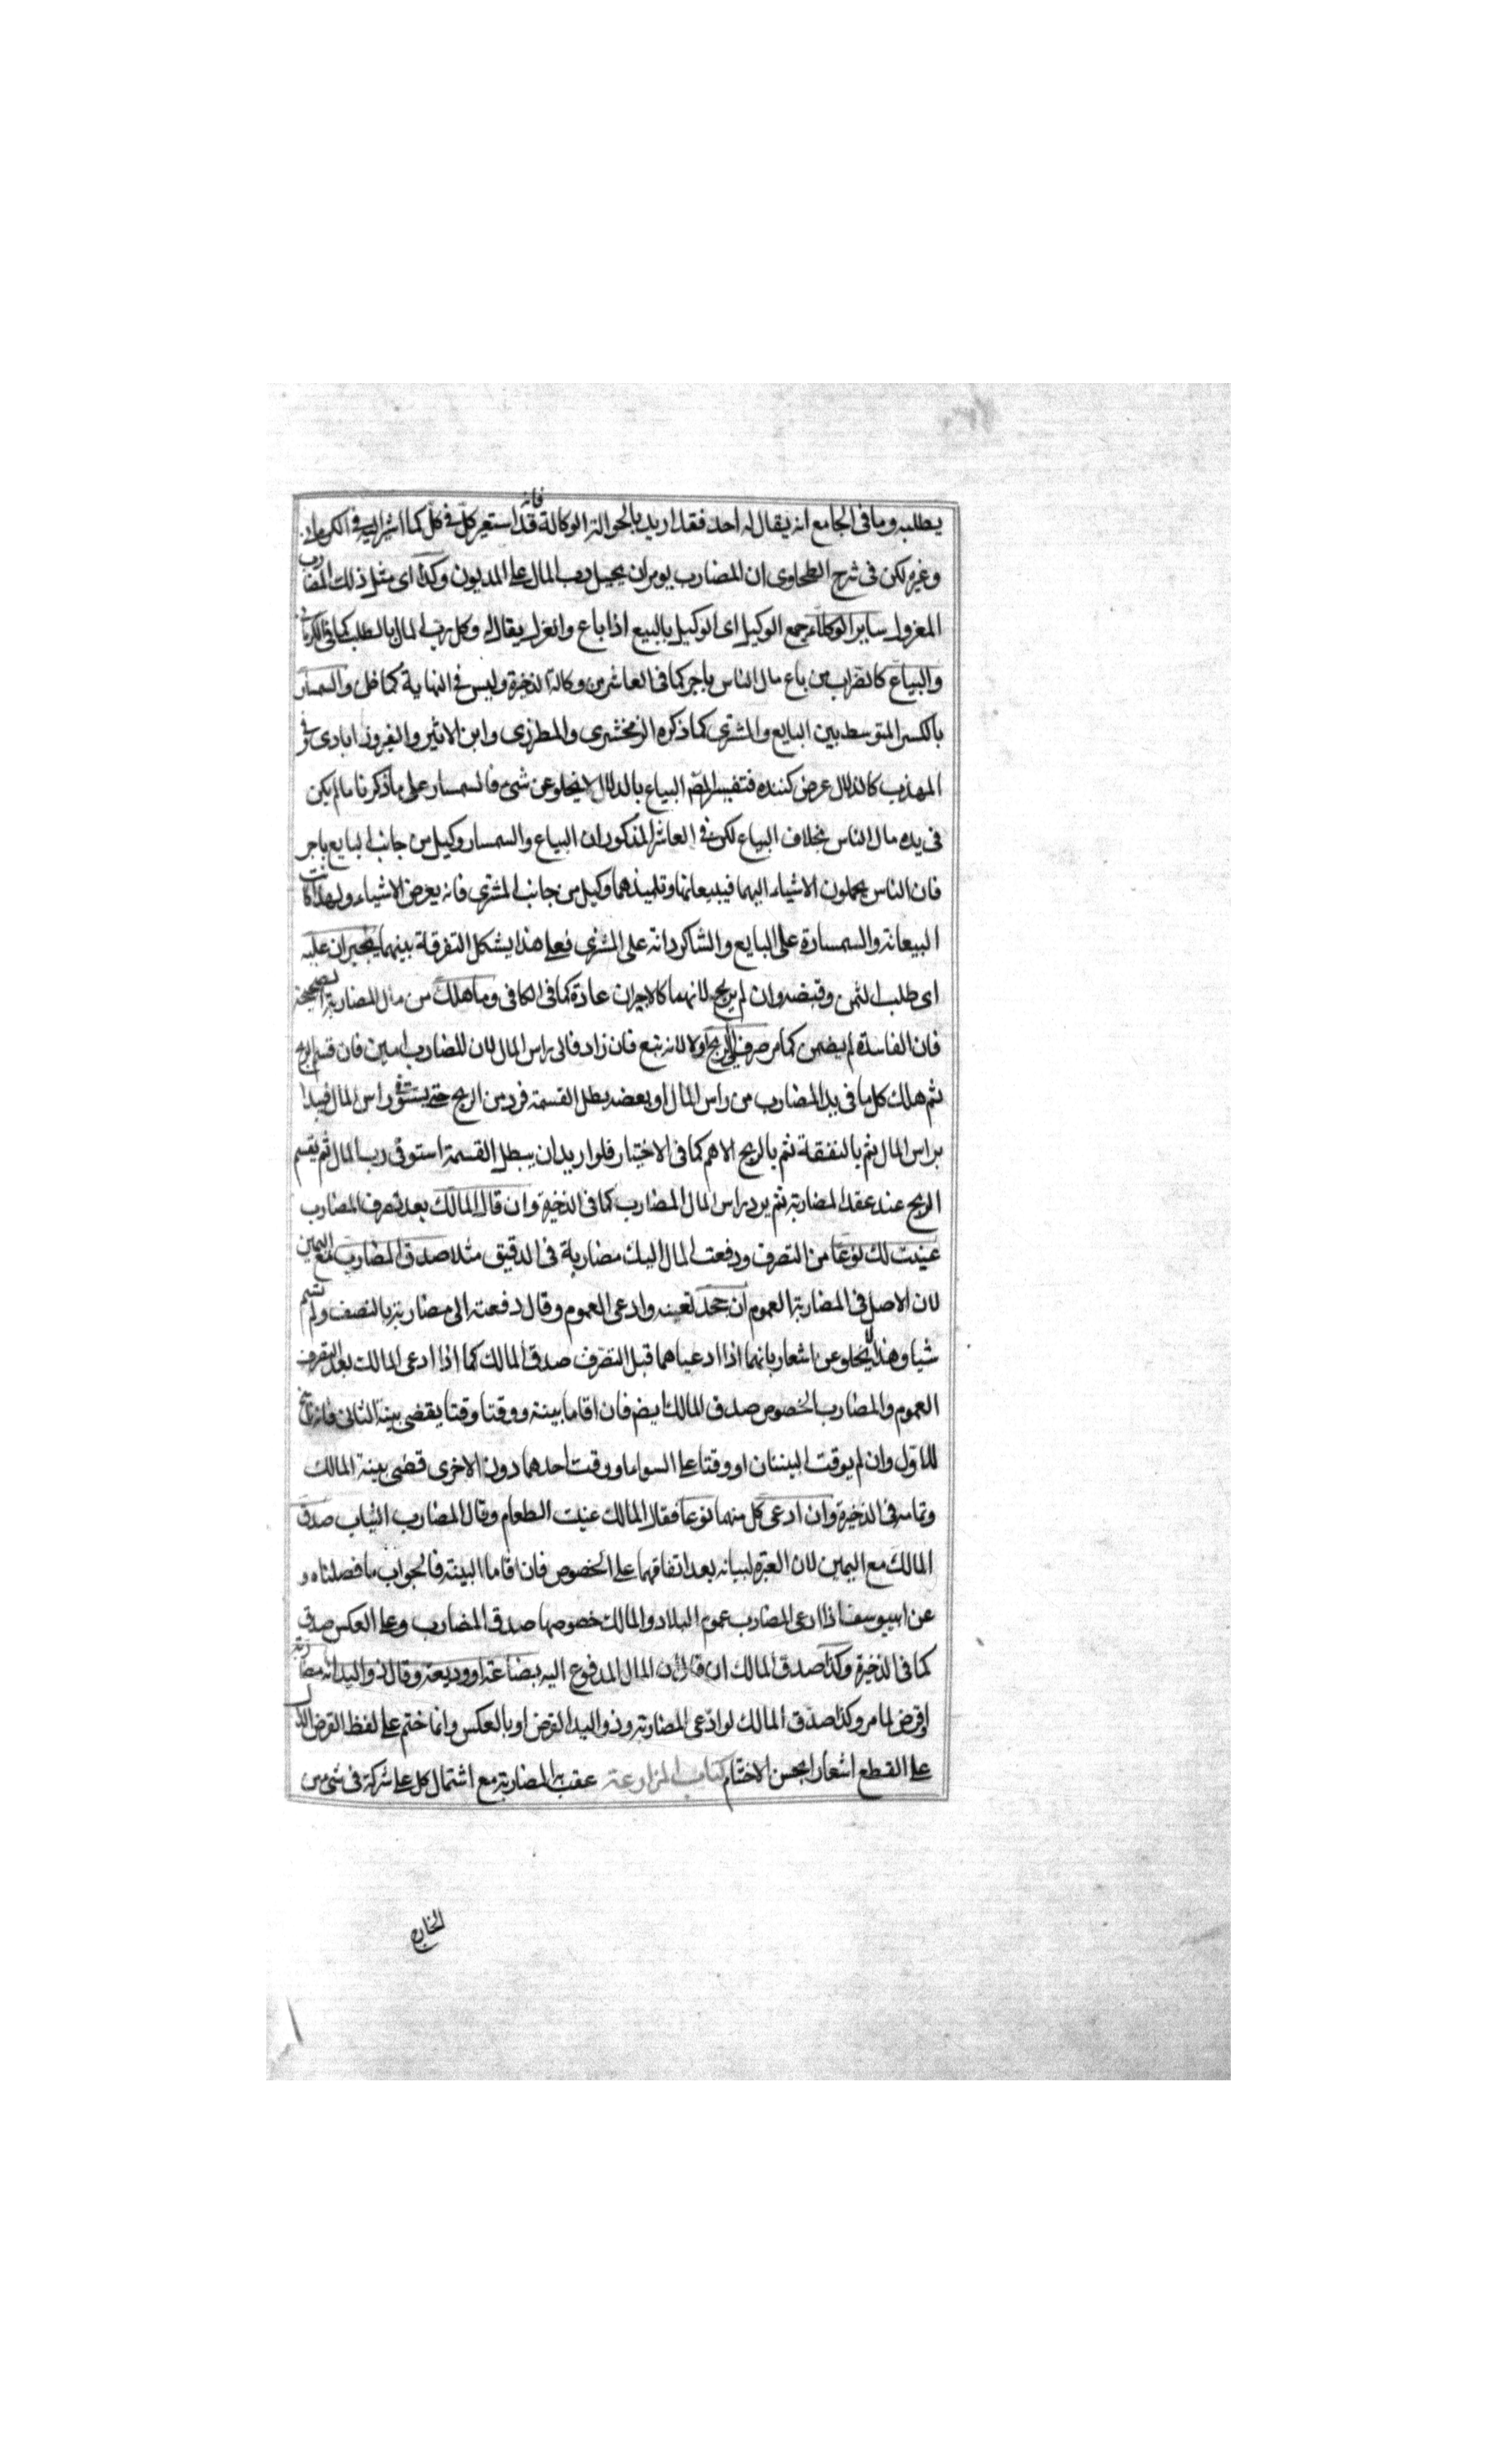 يطلبه وما فى الجامع انه يقال له احد فقد اريد بالحوالة الوكالة فانه قد استعير كل فى كل كما اشير اليه فى الكرمانى
وغيره لكن فى شرح الطحاوى ان المضارب يومر ان يحيل رب المال على المديون وكذا اى مثل ذلك المضارب
المعزول ساير الوكلاء جمع الوكيل اى الوكيل بالبيع اذا باع وانعزل يقال له وكل رب المال بالطلب كما فى الكرمانى
والبياع كالضراب من باع مال الناس باجر كما فى العاشر من وكالة الذخيرة وليس فى النهاية كما ظن والسمسار
بالكسر المتوسط بين البايع والمشترى كما ذكره الزمخشرى والمطرزى وابن الاثير والفيروزابادى وفى
المهذب كالدلال عرض كننده فتفسير المص البياع بالدلال لا يخلو عن شئ فالسمسار على ما ذكرنا ما لم يكن
فى يده مال الناس بخلاف البياع لكن فى العاشر المذكور ان البياع والسمسار وكيل من جانب البايع باجر
فان الناس يحملون الاشياء اليهما فيبيعانها وتلميذهما وكيل من جانب المشترى فانه يعرض الاشياء ولهذا كانت
البيعانة والسمسارة على البايع والشاكردانه على المشترى فعلى هذا يشكل التفرقة بينهما يجبران عليه
اى طلب الثمن وقبضه وان لم يربح لانهما كالاجيران عادة كما فى الكافى وما هلك من مال المضاربة الصحيحة
فان الفاسدة لم يضمن كما مر صرف الى الربح اولا لانه تبع فان زاد فالى راس المال لان المضارب امين فان قسم الربح
ثم هلك كل ما فى يد المضارب من راس المال او بعضه بطل القسمة فرد من الربح حتى يستوفى راس المال فيبدا
براس المال ثم بالنفقة ثم بالربح الاهم كما فى الاختيار فلو اريد ان يبطل القسمة استوفى رب المال ثم يقسم
الربح عند عقد المضاربة ثم يرد راس المال المضارب كما فى الذخيرة وان قال المالك بعد تصرف المضارب
عينت لك نوعا من التصرف ودفعت المال اليك مضاربة فى الدقيق مثلا صدق المضارب مع اليمين
لان الاصل فى المضاربة العموم ان جحد تعيينه وادعى العموم وقال دفعته الى مضاربة بالنصف ولم تسم
شيا وهذا لا يخلو عن اشعار بانهما اذا ادعياهما قبل التصرف صدق المالك كما اذا ادعى المالك بعد التصرف
العموم والمضارب الخصوص صدق المالك ايضا فان اقاما بينة ووقتا وقتا يقضى ببينة الثانى فانه ناسخ
للاول وان لم يوقت البينتان او وقتا على السواء او وقت احدهما دون الاخرى قضى ببينة المالك
وتمامه فى الذخيرة وان ادعى كل منهما نوعا فقال المالك عنيت الطعام وقال المضارب الثياب صدق
المالك مع اليمين لان العبرة لبيانه بعد اتفاقهما على الخصوص فان اقاما البينة فالجواب ما فصلناه و
عن ابى يوسف اذا ادعى المضارب عموم البلاد والمالك خصوصها صدق المضارب وعلى العكس صدق
كما فى الذخيرة وكذا صدق المالك ان قال ان المال المدفوع اليه بضاعة او وديعة وقال ذو اليد انه مضاربة
او قرض لما مر وكذا صدق المالك لو ادعى المضاربة وذو اليد القرض او بالعكس وانما ختم على لفظ القرض الدال
على القطع اشعارا بحسن الاختتام كتاب المزارعة عقب بها المضاربة مع اشتمال كل على شركة فى شئ من
الخارج